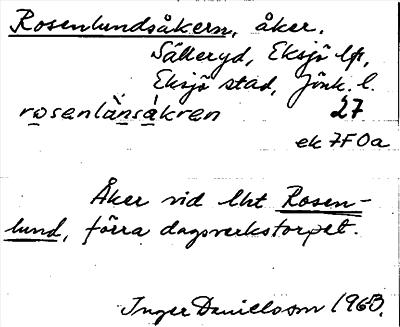 Rosenlundsåkern, åker.
Sälleryd, Eksjö lfs,
Eksjö stad, Jönk. l.
rosenlànsákren 27
ek 7F0a
Åker vid lht Rosen-
lund, förra dagsverkstorpet.
Inger Danielsson 1963.